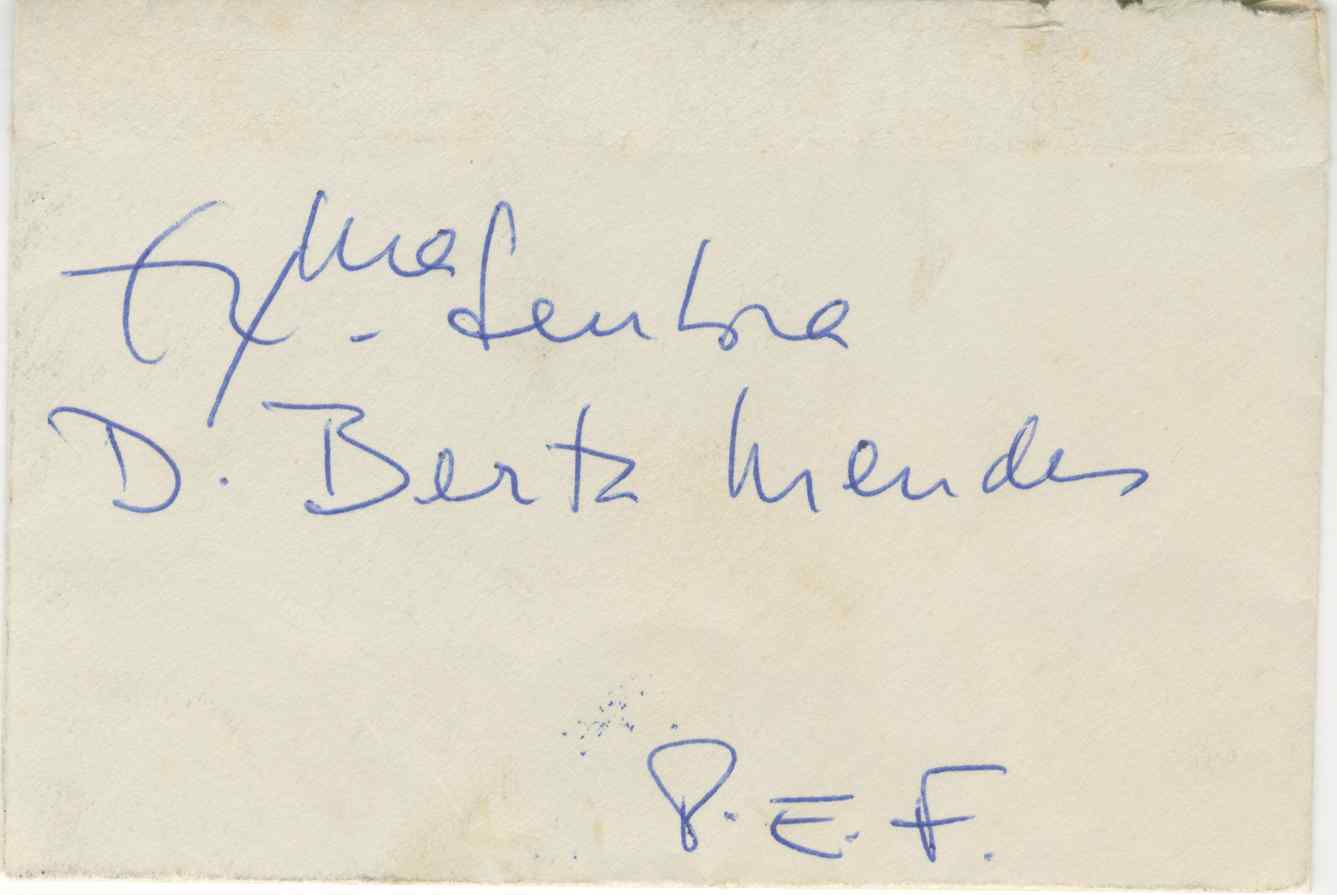 Exma. Senhora
D. Berta Mendes
P. E. F.